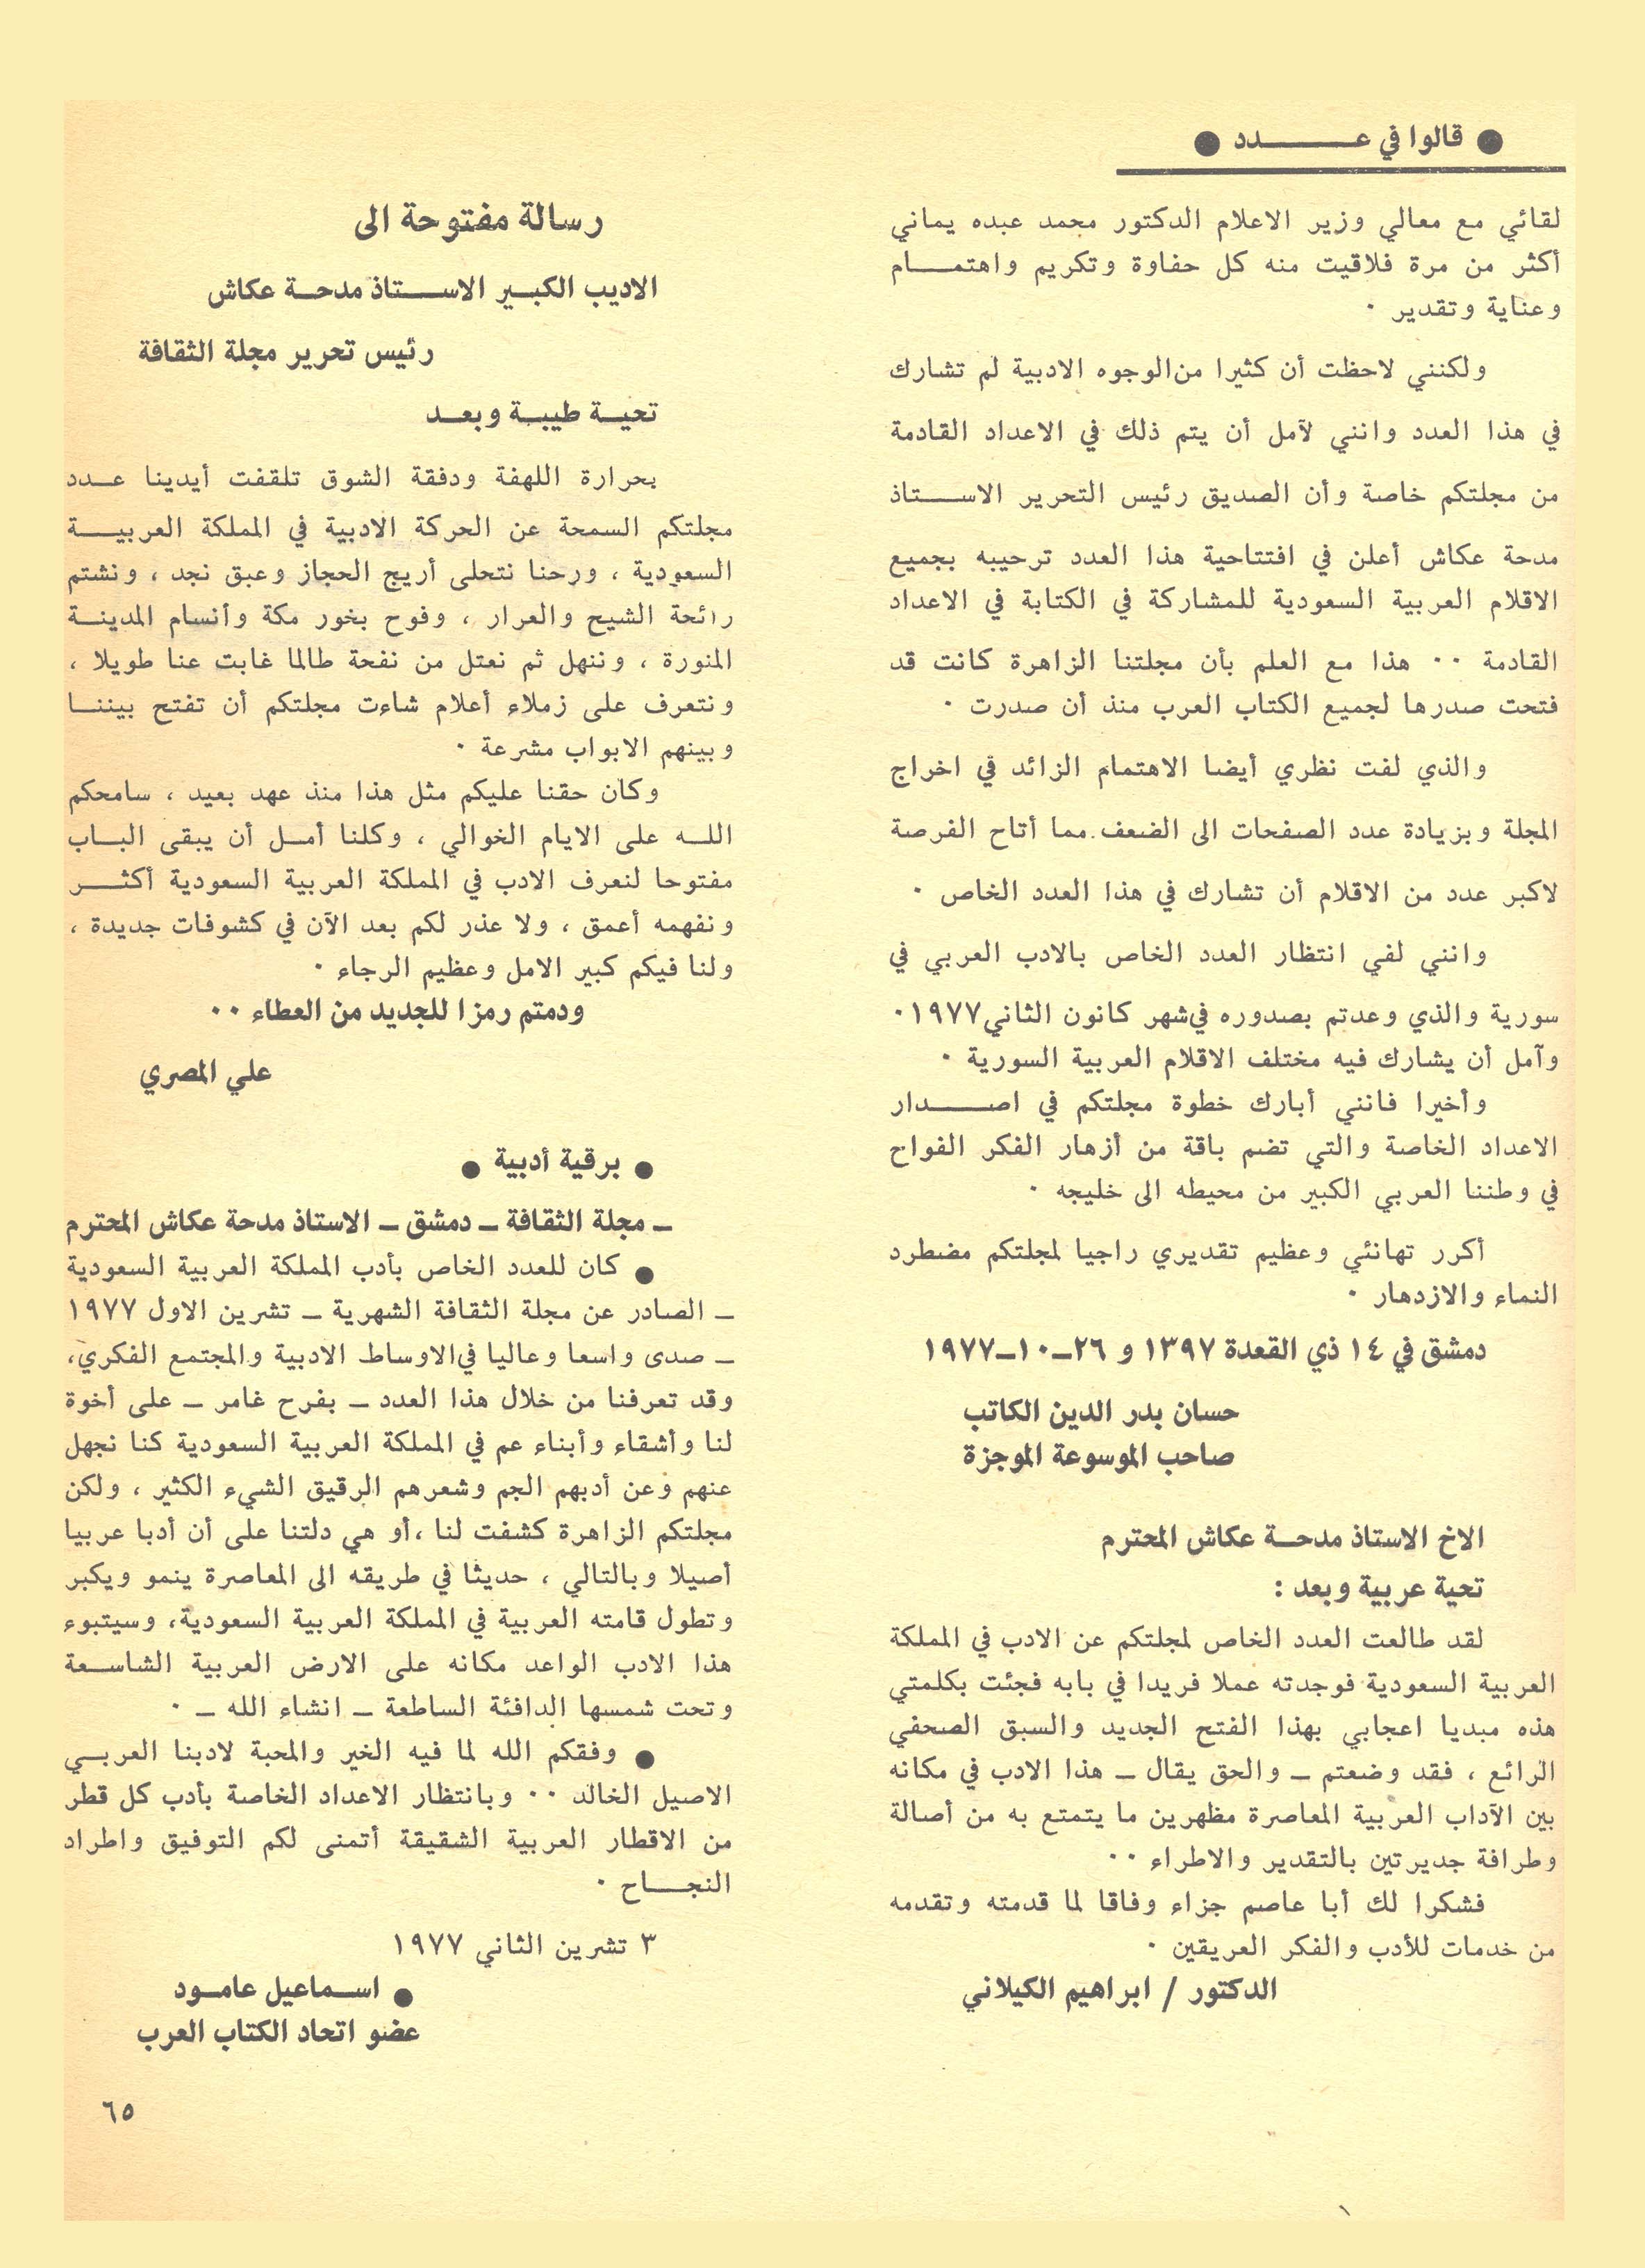 ● قالوا في عـــــدد ●
لقائي مع معالي وزير الاعلام الدكتور محمد عبده يماني
أكثر من مرة فلاقيت منه كل حفاوة وتكريم واهتمــام
وعناية وتقدير ٠
ولكنني لاحظت أن كثيرا من الوجوه الادبية لم تشارك
في هذا العدد وانني لآمل أن يتم ذلك في الاعداد القادمة
من مجلتكم خاصة وأن الصديق رئيس التحرير الاســـتاذ
مدحة عكاش أعلن في افتتاحية هذا العدد ترحيبه بجميع
الاقلام العربية السعودية للمشاركة في الكتابة في الاعداد
القادمة ٠٠ هذا مع العلم بأن مجلتنا الزاهرة كانت قد
فتحت صدرها لجميع الكتاب العرب منذ أن صدرت ٠
والذي لفت نظري أيضا الاهتمام الزائد في اخراج
المجلة وبزيادة عدد الصفحات الى الضعف مما أتاح الفرصة
لاكبر عدد من الاقلام أن تشارك في هذا العدد الخاص ٠
وانني لفي انتظار العدد الخاص بالادب العربي في
سورية والذي وعدتم بصدوره في شهر كانون الثاني ١٩٧٧٠
وآمل أن يشارك فيه مختلف الاقلام العربية السورية ٠
وأخيرا فانني أبارك خطوة مجلتكم في اصــــدار
الاعداد الخاصة والتي تضم باقة من أزهار الفكر الفواح
في وطننا العربي الكبير من محيطه الى خليجه ٠
أكرر تهانئي وعظيم تقديري راجيا لمجلتكم مضطرد
النماء والازدهار ٠
دمشق في ١٤ ذي القعدة ١٣٩٧ و ٢٦ــ١٠ــ١٩٧٧
حسان بدر الدين الكاتب
صاحب الموسوعة الموجزة
الاخ الاستاذ مدحــة عكاش المحترم
تحية عربية وبعد :
لقد طالعت العدد الخاص لمجلتكم عن الادب في المملكة
العربية السعودية فوجدته عملا فريدا في بابه فجئت بكلمتي
هذه مبديا اعجابي بهذا الفتح الجديد والسبق الصحفي
الرائع ، فقد وضعتم ــ والحق يقال ــ هذا الادب في مكانه
بين الآداب العربية المعاصرة مظهرين ما يتمتع به من أصالة
وطرافة جديرتين بالتقدير والاطراء ٠٠
فشكرا لك أبا عاصم جزاء وفاقا لما قدمته وتقدمه
من خدمات للأدب والفكر العريقين ٠
الدكتور / ابراهيم الكيلاني
رسالة مفتوحة الى
الاديب الكبـير الاســـتاذ مدحـة عكاش
رئيس تحرير مجلة الثقافة
تحيـة طيبـة وبعـد
بحرارة اللهفة ودفقة الشوق تلقفت أيدينا عـدد
مجلتكم السمحة عن الحركة الادبية في المملكة العربيـــة
السعودية ، ورحنا نتحلى أريج الحجاز وعبق نجد ، ونشتم
رائحة الشيح والعرار ، وفوح بخور مكة وأنسام المدينــة
المنورة ، وننهل ثم نعتل من نفحة طالما غابت عنا طويلا ،
ونتعرف على زملاء أعلام شاءت مجلتكم أن تفتح بيننــا
وبينهم الابواب مشرعة ٠
وكان حقنا عليكم مثل هذا منذ عهد بعيد ، سامحكم
اللـه على الايام الخوالي ، وكلنا أمـل أن يبقى البـاب
مفتوحا لنعرف الادب في المملكة العربية السعودية أكثـــر
ونفهمه أعمق ، ولا عذر لكم بعد الآن في كشوفات جديدة ،
ولنا فيكم كبير الامل وعظيم الرجاء ٠
ودمتم رمزا للجديد من العطاء ٠٠
علي المصري
● برقية أدبية ●
ــ مجلة الثقافة ــ دمشق ــ الاستاذ مدحة عكاش المحترم
● كان للعدد الخاص بأدب المملكة العربية السعودية
ــ الصادر عن مجلة الثقافة الشهرية ــ تشرين الاول ١٩٧٧
ــ صدى واسعا وعاليا في الاوساط الادبية والمجتمع الفكري،
وقد تعرفنا من خلال هذا العدد ــ بفرح غامر ــ على أخوة
لنا وأشقاء وأبناء عم في المملكة العربية السعودية كنا نجهل
عنهم وعن أدبهم الجم وشعرهم الرقيق الشيء الكثير ، ولكن
مجلتكم الزاهرة كشفت لنا ،أو هي دلتنا على أن أدبا عربيا
أصيلا وبالتالي ، حديثا في طريقه الى المعاصرة ينمو ويكبر
وتطول قامته العربية في المملكة العربية السعودية، وسيتبوء
هذا الادب الواعد مكانه على الارض العربية الشاسـعة
وتحت شمسها الدافئة الساطعة ــ انشاء الله ــ ٠
● وفقكم الله لما فيه الخير والمحبة لادبنا العربـي
الاصيل الخالد ٠٠ وبانتظار الاعداد الخاصة بأدب كل قطر
من الاقطار العربية الشقيقة أتمنى لكم التوفيق واطراد
النجـــاح ٠
٣ تشرين الثاني ١٩٧٧
● اسـماعيل عامـود
عضو اتحاد الكتاب العرب
٦٥